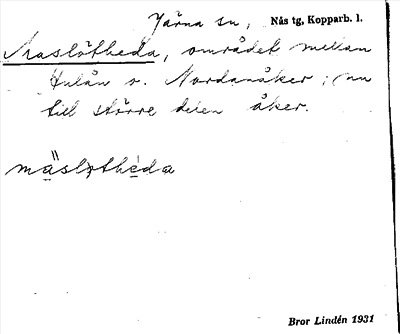 Järna sn, Nås tg, Kopparb. l.
Masslötheda, området mellan
Hulån o. Nordanåker; nu
till större delen åker.
mäslothèda
Bror Lindén 1931